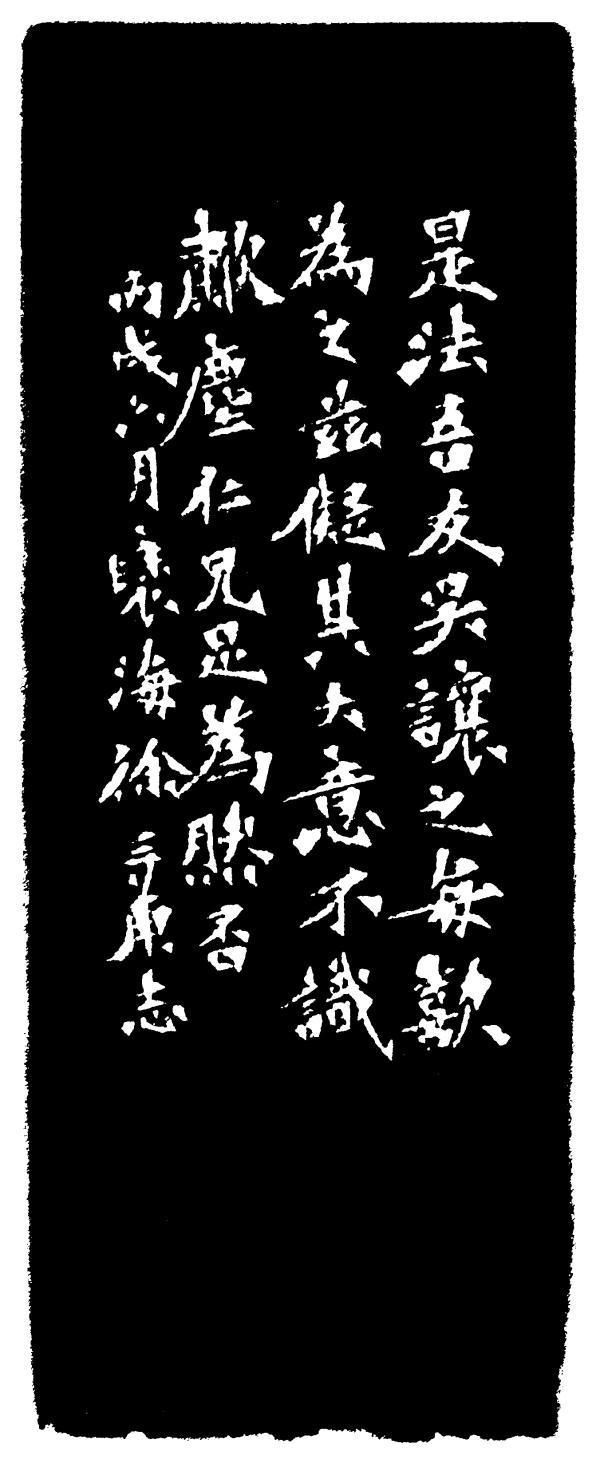 是法吾友吳讓之每歡
為之茲儗其大意不識
歗塵仁兄足為然否
丙戌六月海徐三庚志